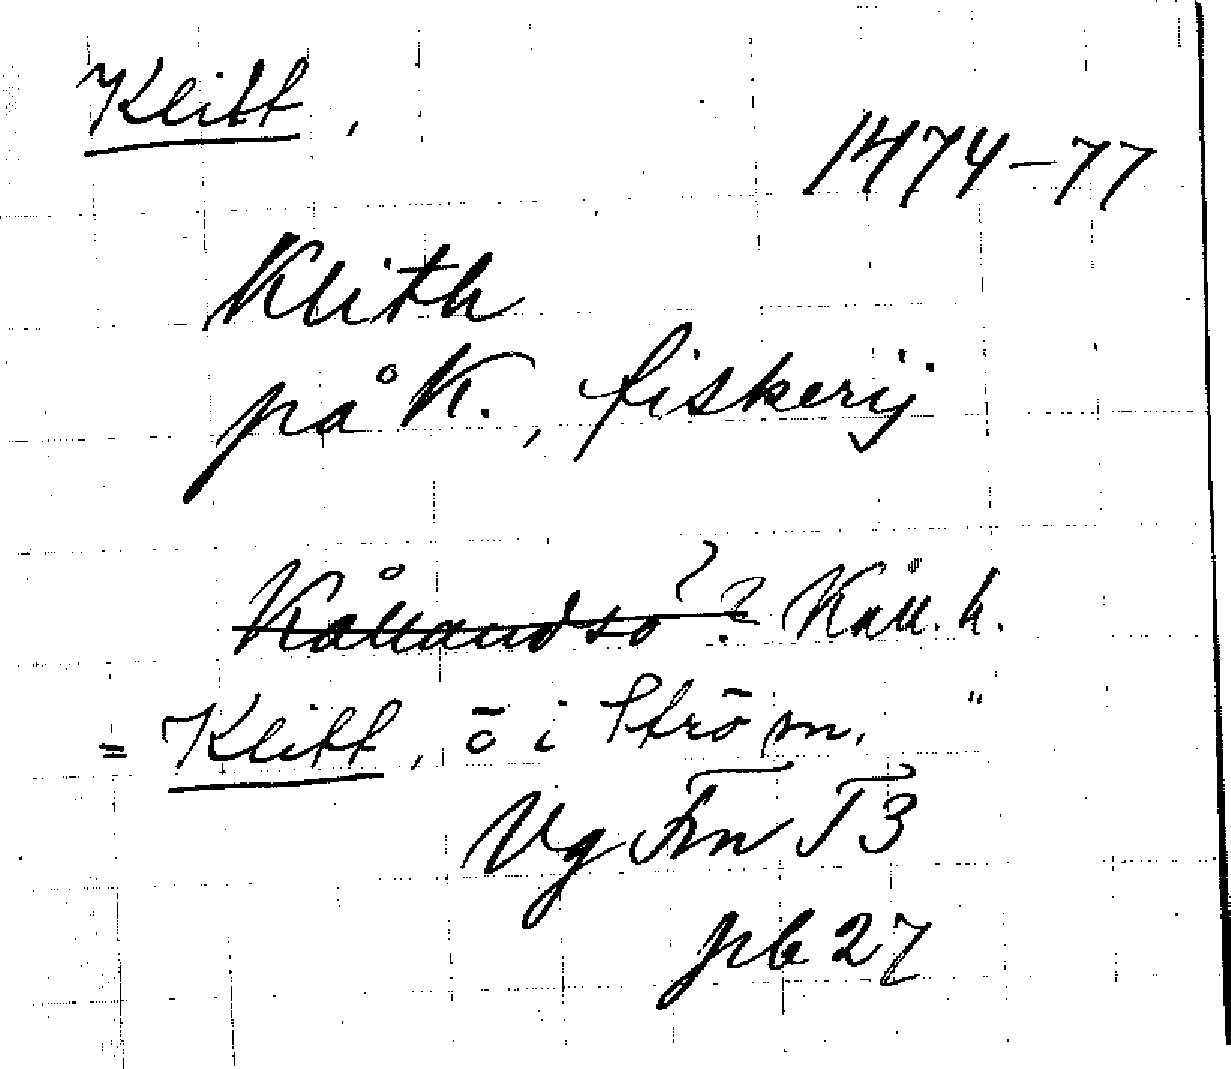 Klitt,
1474-77
Klith
på K., fiskerij
Kållandsö?? Kåll. h.
= Klitt, ö i Ström, "
Vg Frn T3
pb 27